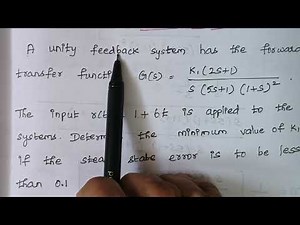 A unity feedback system has the forward
transfer function G(s) = K₁(2s+1)
s(5s+1)(1+s)²
The input r(t) = 1+6t is applied to the
systems. Determine the minimum value of K₁
if the steady state error is to be less
than 0.1